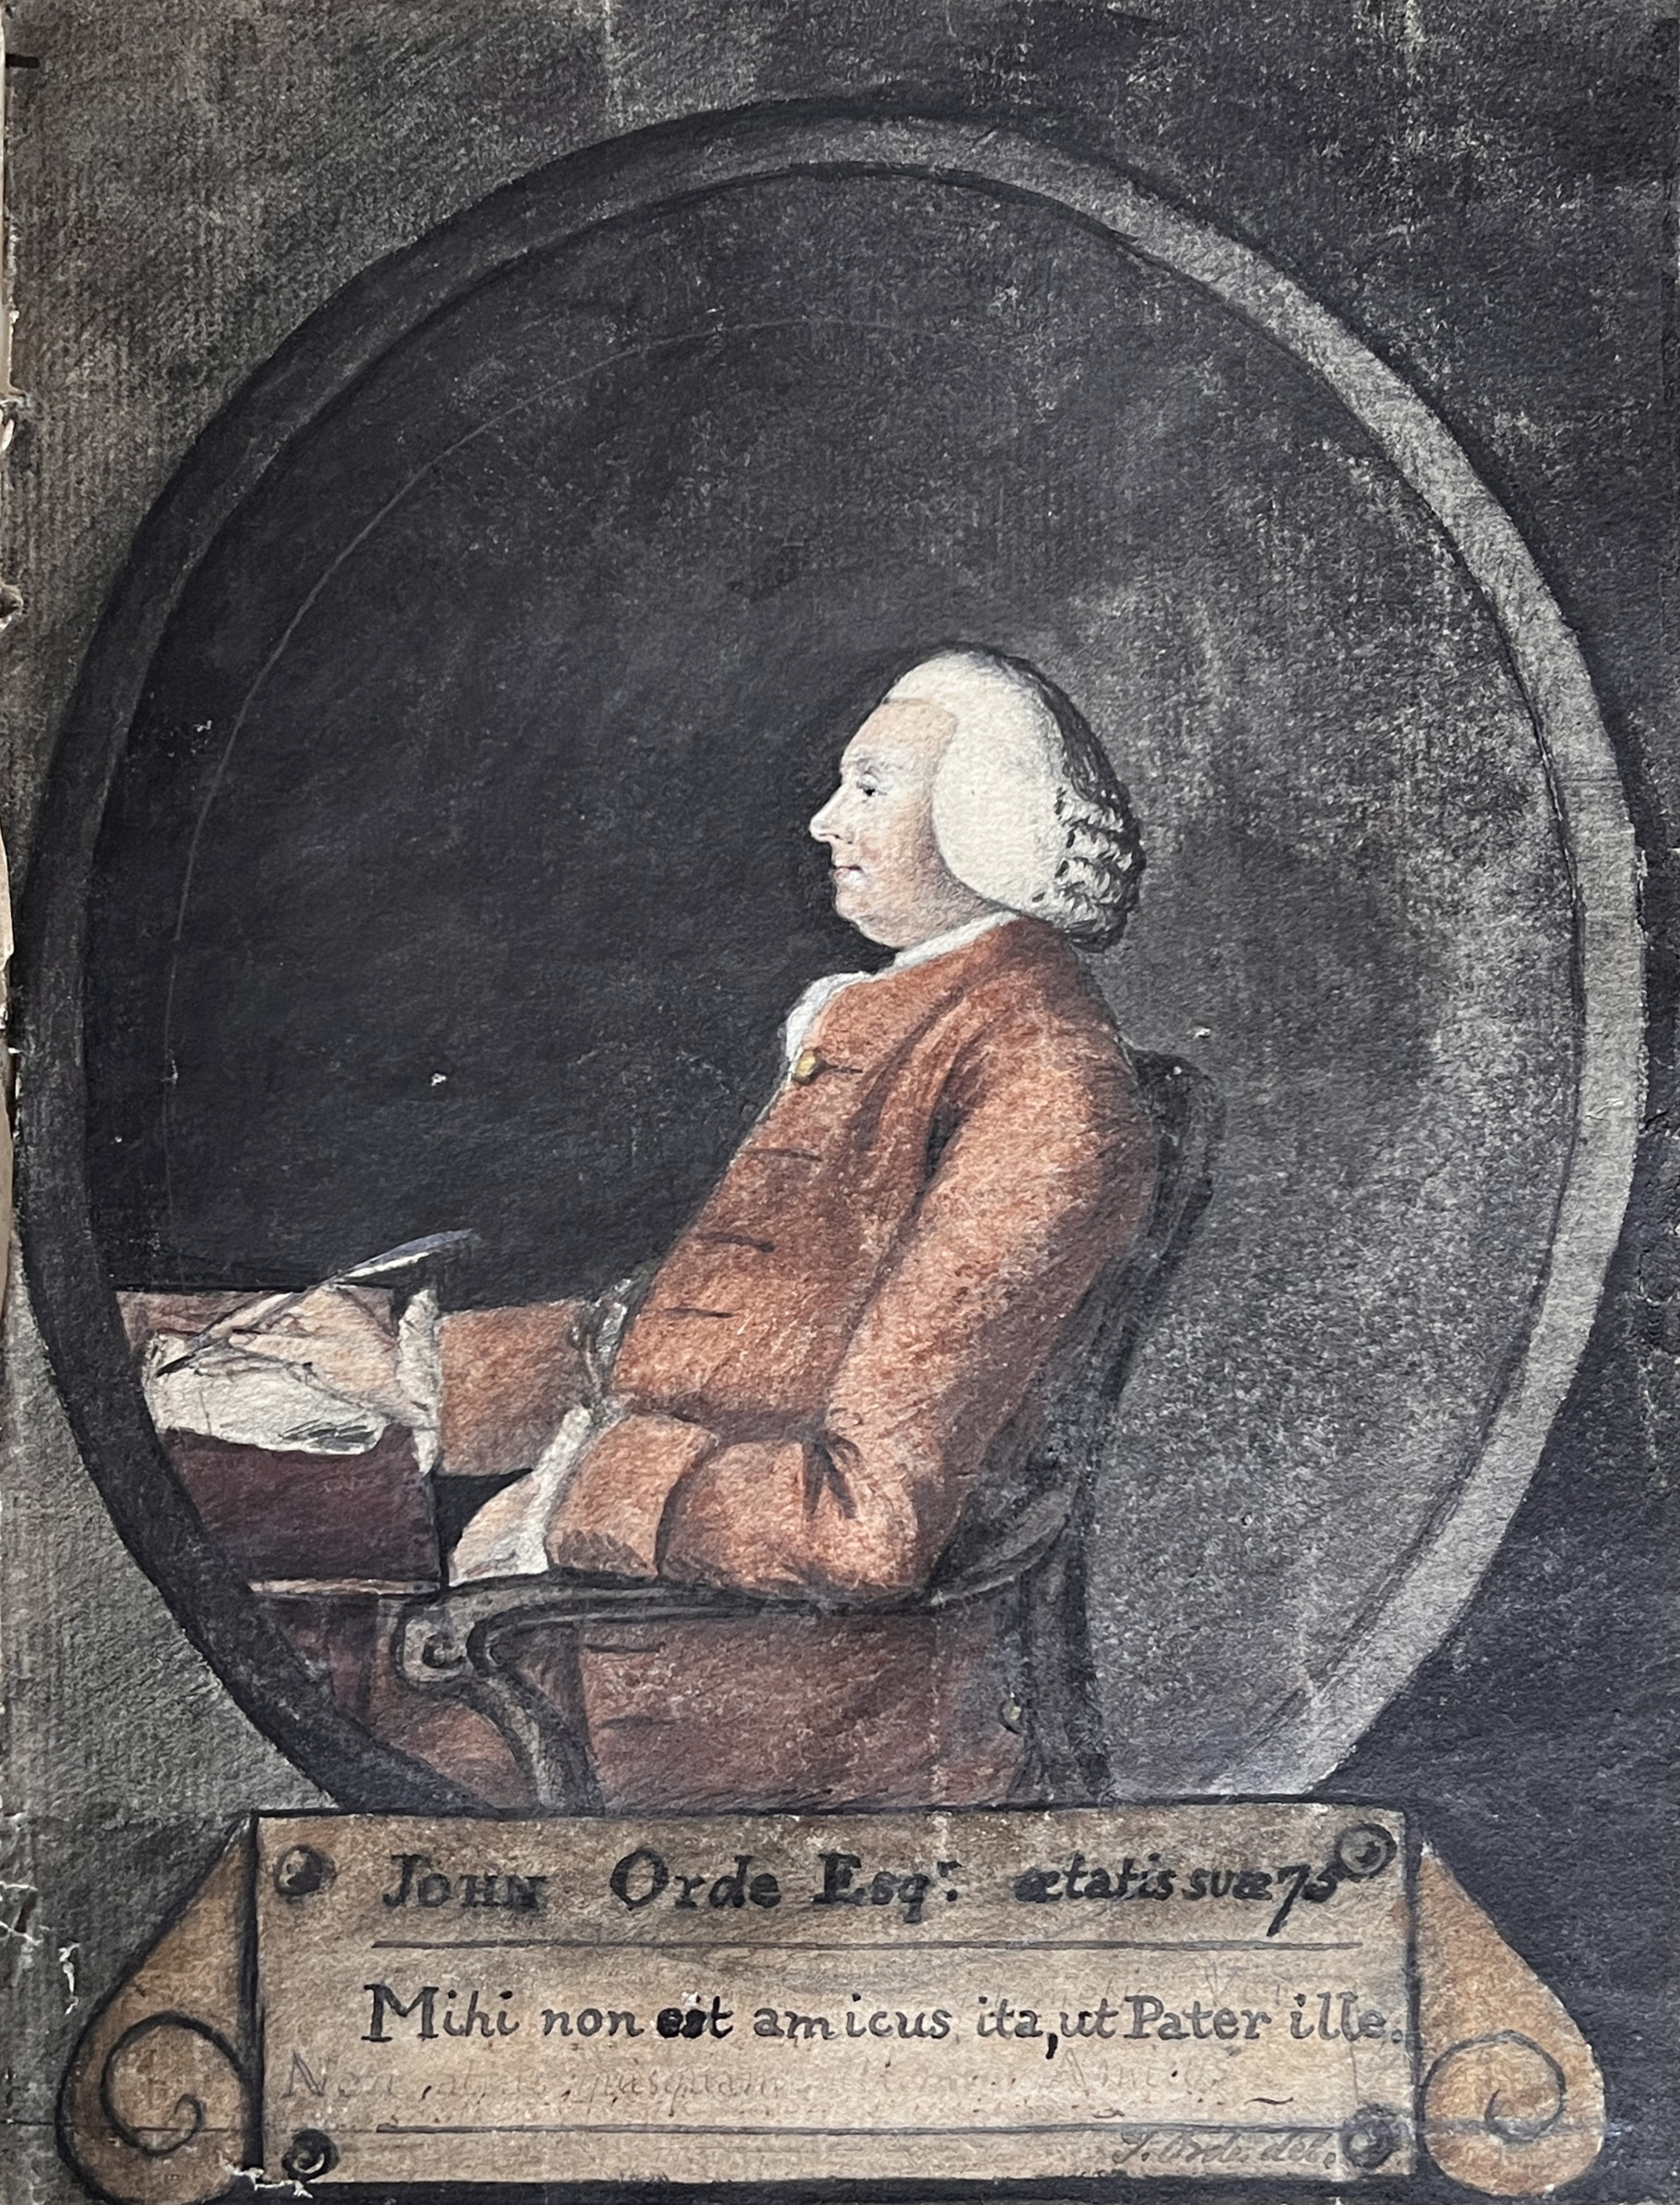 John Orde Esqr. ætatis suæ 75
Mihi non est amicus ita, ut Pater ille.
Non quisquam
T. Orde del.